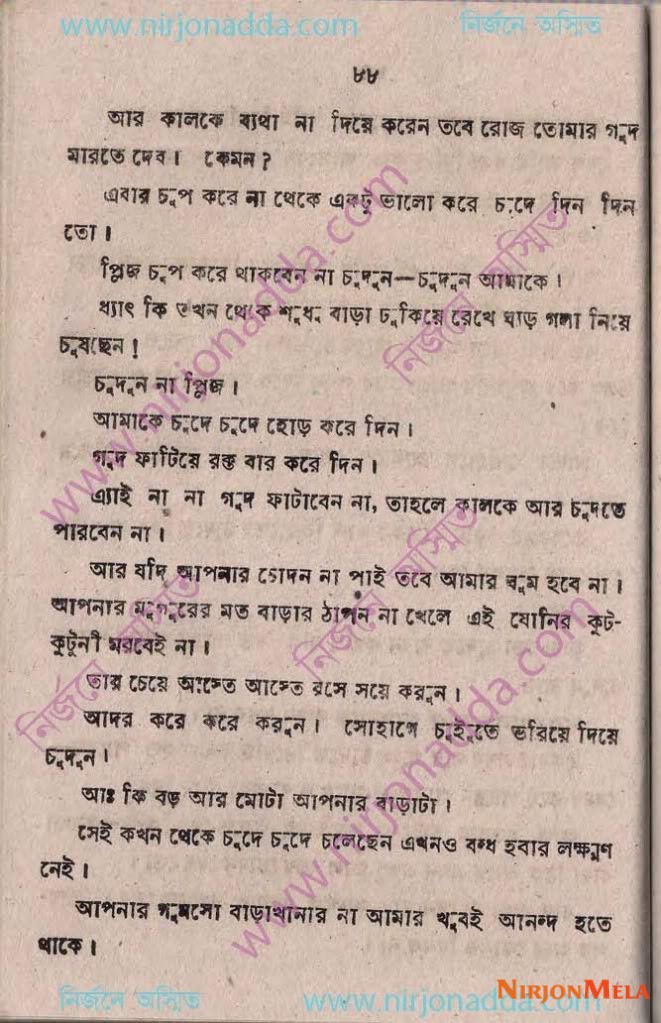 www.nirjonadda.com নির্জনে অস্মিত
৮৮
আর কালকে ব্যথা না দিয়ে করেন তবে রোজ তোমার গুদ
মারতে দেব। কেমন?
এবার চুপ করে না থেকে একটু ভালো করে চুদে দিন দিন
তো।
প্লিজ চুপ করে থাকবেন না চুদুন—চুদুন আমাকে।
ধ্যাৎ কি তখন থেকে শুধু বাড়া ঢুকিয়ে রেখে ঘাড় গলা নিয়ে
চুষছেন!
চুদুন না প্লিজ।
আমাকে চুদে চুদে হোড় করে দিন।
গুদ ফাটিয়ে রক্ত বার করে দিন।
এ্যাই না না গুদ ফাটাবেন না, তাহলে কালকে আর চুদতে
পারবেন না।
আর যদি আপনার চোদন না পাই তবে আমার ঘুম হবে না।
আপনার মুগুরের মত বাড়ার ঠাপন না খেলে এই যোনির কুট-
কুটুনী মরবেই না।
তার চেয়ে আস্তে আস্তে রসে সয়ে করুন।
আদর করে করে করুন। সোহাগে চুইতে ভরিয়ে দিয়ে
চুদুন।
আঃ কি বড় আর মোটা আপনার বাড়াটা।
সেই কখন থেকে চুদে চুদে চলেছেন এখনও বন্ধ হবার লক্ষ্মণ
নেই।
আপনার বাড়াখানার না আমার খুবই আনন্দ হতে
থাকে।
www.nirjonadda.com
নির্জনে অস্মিত
নির্জনে অস্মিত
নির্জনে অস্মিত
www.nirjonadda.com
নির্জনে অস্মিত www.nirjonadda.com
NIRJONMELA